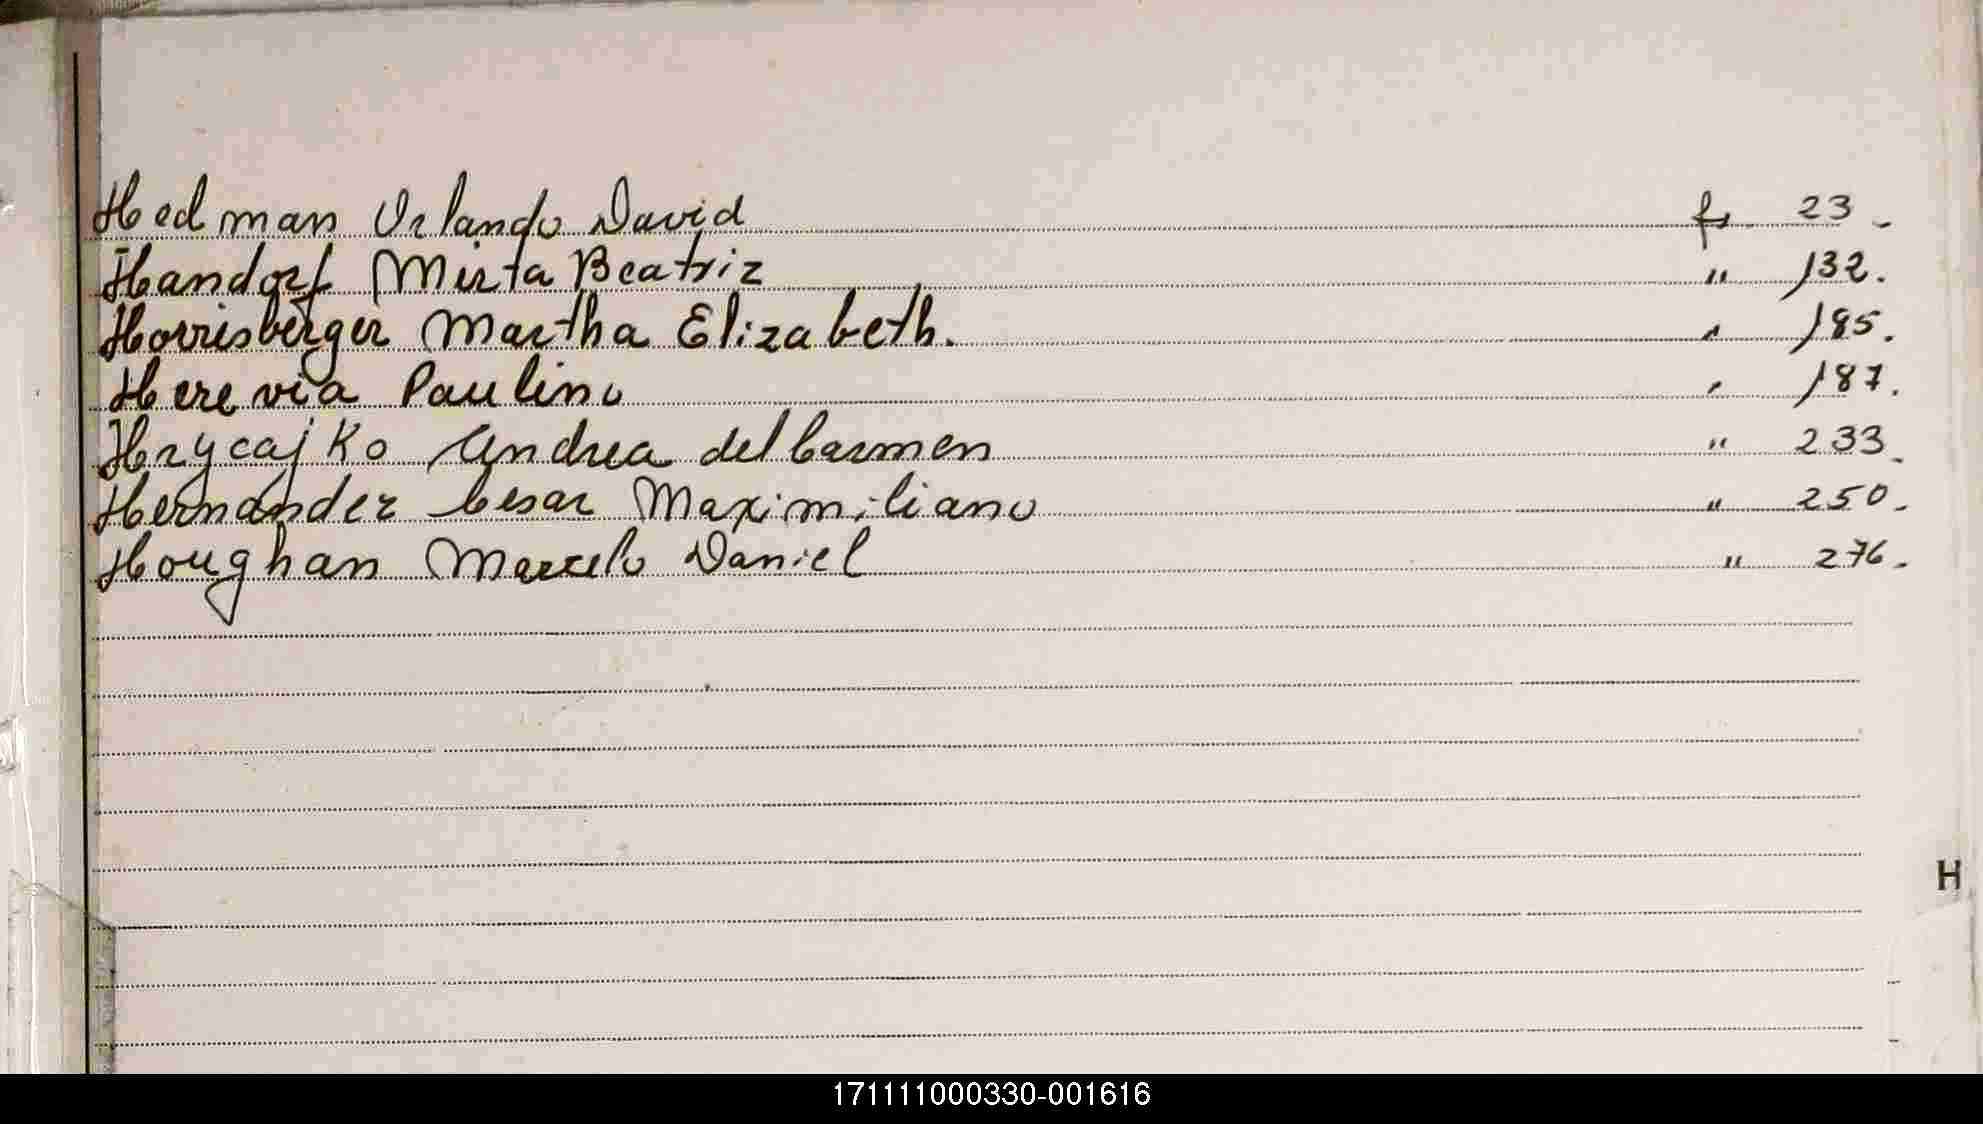 Hedman Orlando David fs 23.
Handorf Mirta Beatriz " 132.
Horrisberger Martha Elizabeth. " 185.
Herevia Paulino " 187.
Hrycajko Andrea del Carmen " 233.
Hernández Cesar Maximiliano " 250.
Houghan Marcelo Daniel " 276.
H
171111000330-001616